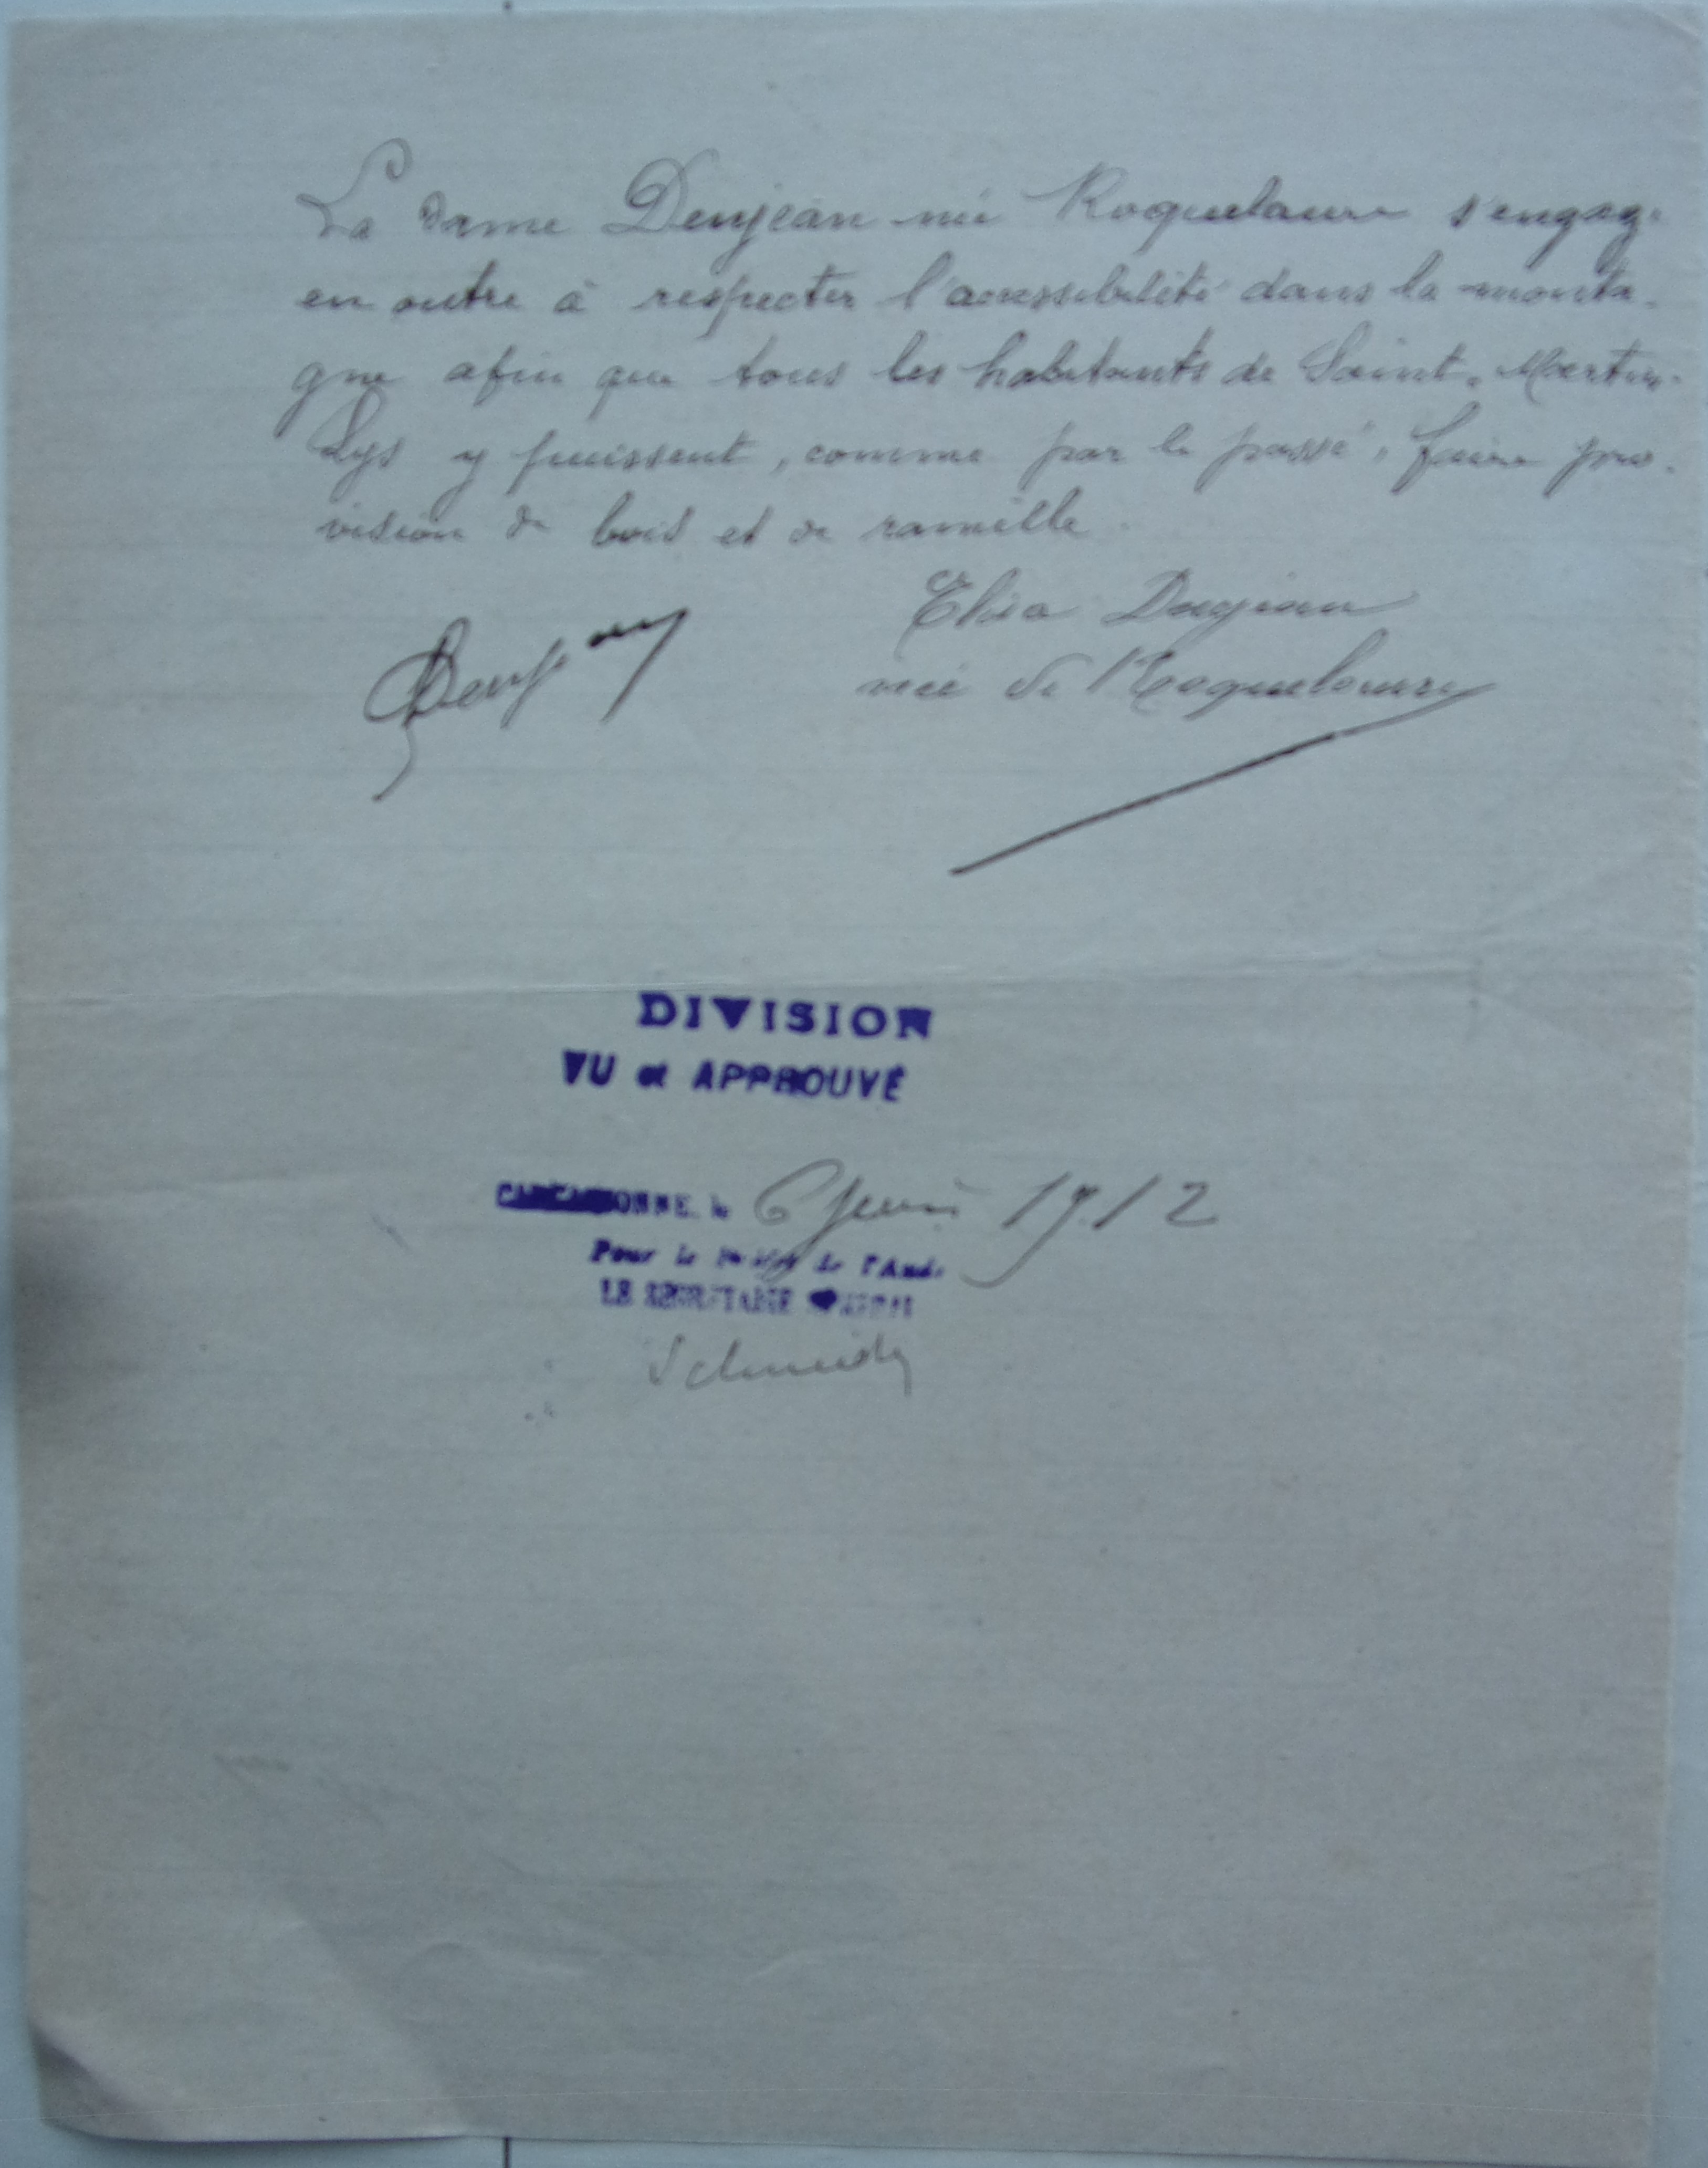 La dame Denjean née Roquelaure s'engage
en outre à respecter l'accessibilité dans la monta-
gne afin que tous les habitants de Saint-Martin-
Lys y puissent, comme par le passé, faire pro-
vision de bois et de ramille.
Elisa Denjean
née de Roquelaure
Denjean
DIVISION
VU et APPROUVÉ
CARCASSONNE, le 6 Juin 1912
Pour le Préfet de l'Aude
LE SECRÉTAIRE GÉNÉRAL